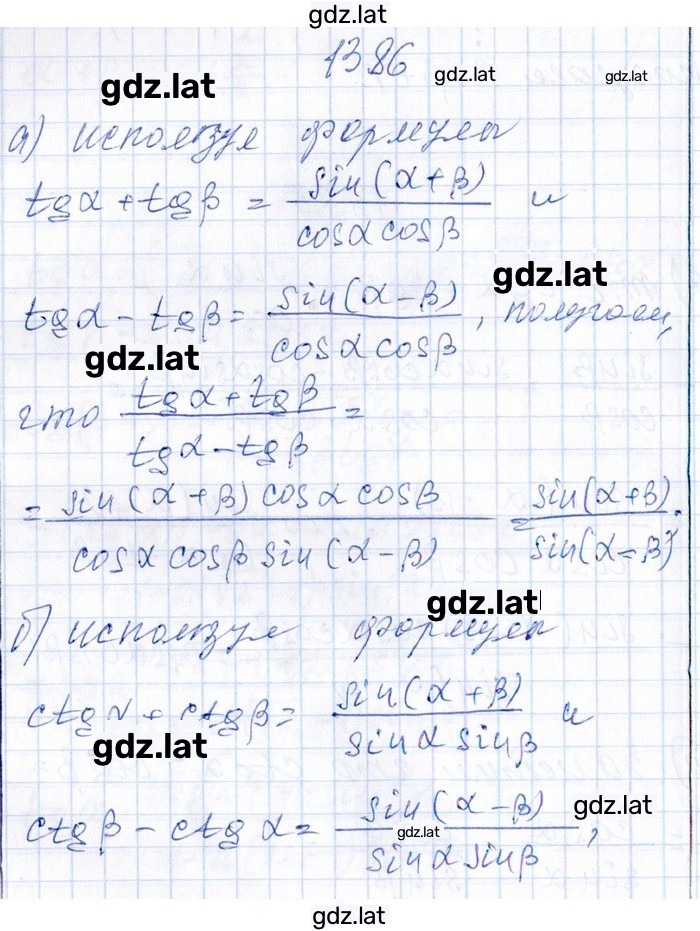 gdz.lat
1386
gdz.lat gdz.lat gdz.lat
а) используя формулы
tgα + tgβ = sin(α+β) / cosα cosβ и
gdz.lat
tgα - tgβ = sin(α-β) / cosα cosβ, получаем,
gdz.lat
что tgα + tgβ / tgα - tgβ =
= sin(α+β) cosα cosβ / cosα cosβ sin(α-β) = sin(α+β) / sin(α-β).
gdz.lat
б) используя формулы
ctgα + ctgβ = sin(α+β) / sinα sinβ и
gdz.lat
ctgβ - ctgα = sin(α-β) / sinα sinβ,
gdz.lat
gdz.lat
gdz.lat